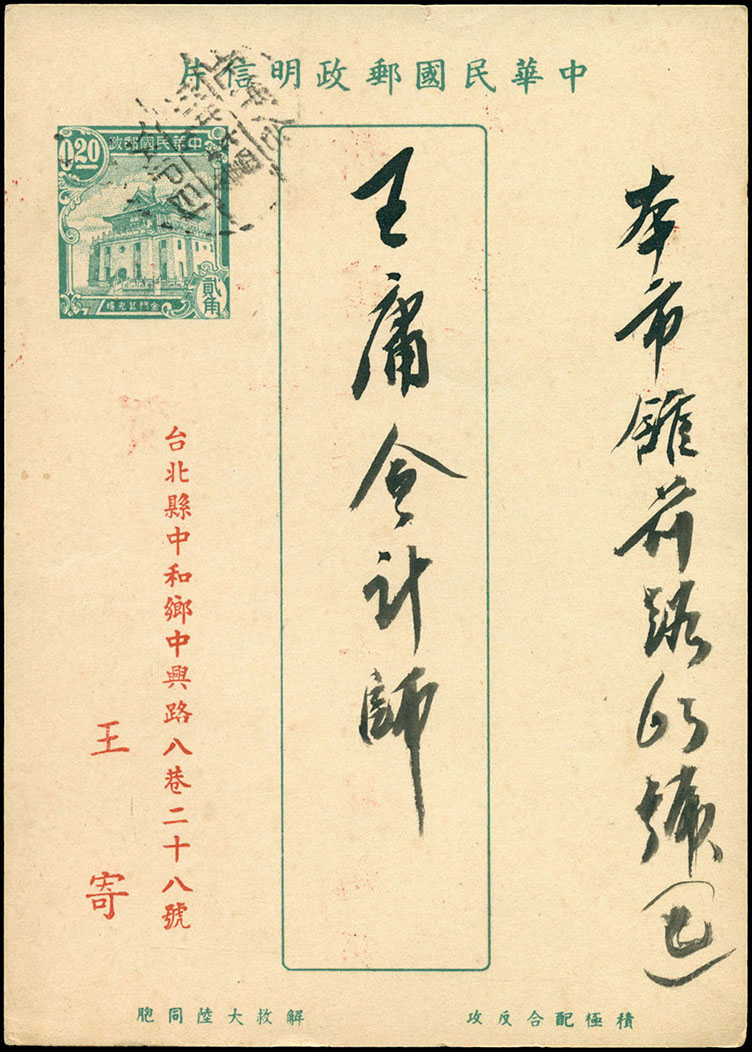 中華民國郵政明信片
中華民國郵政
0.20
貳角
金門莒光樓
本市館前路65號
王庸会計師
台北縣中和鄉中興路八巷二十八號
王寄
積極配合反攻
解救大陸同胞